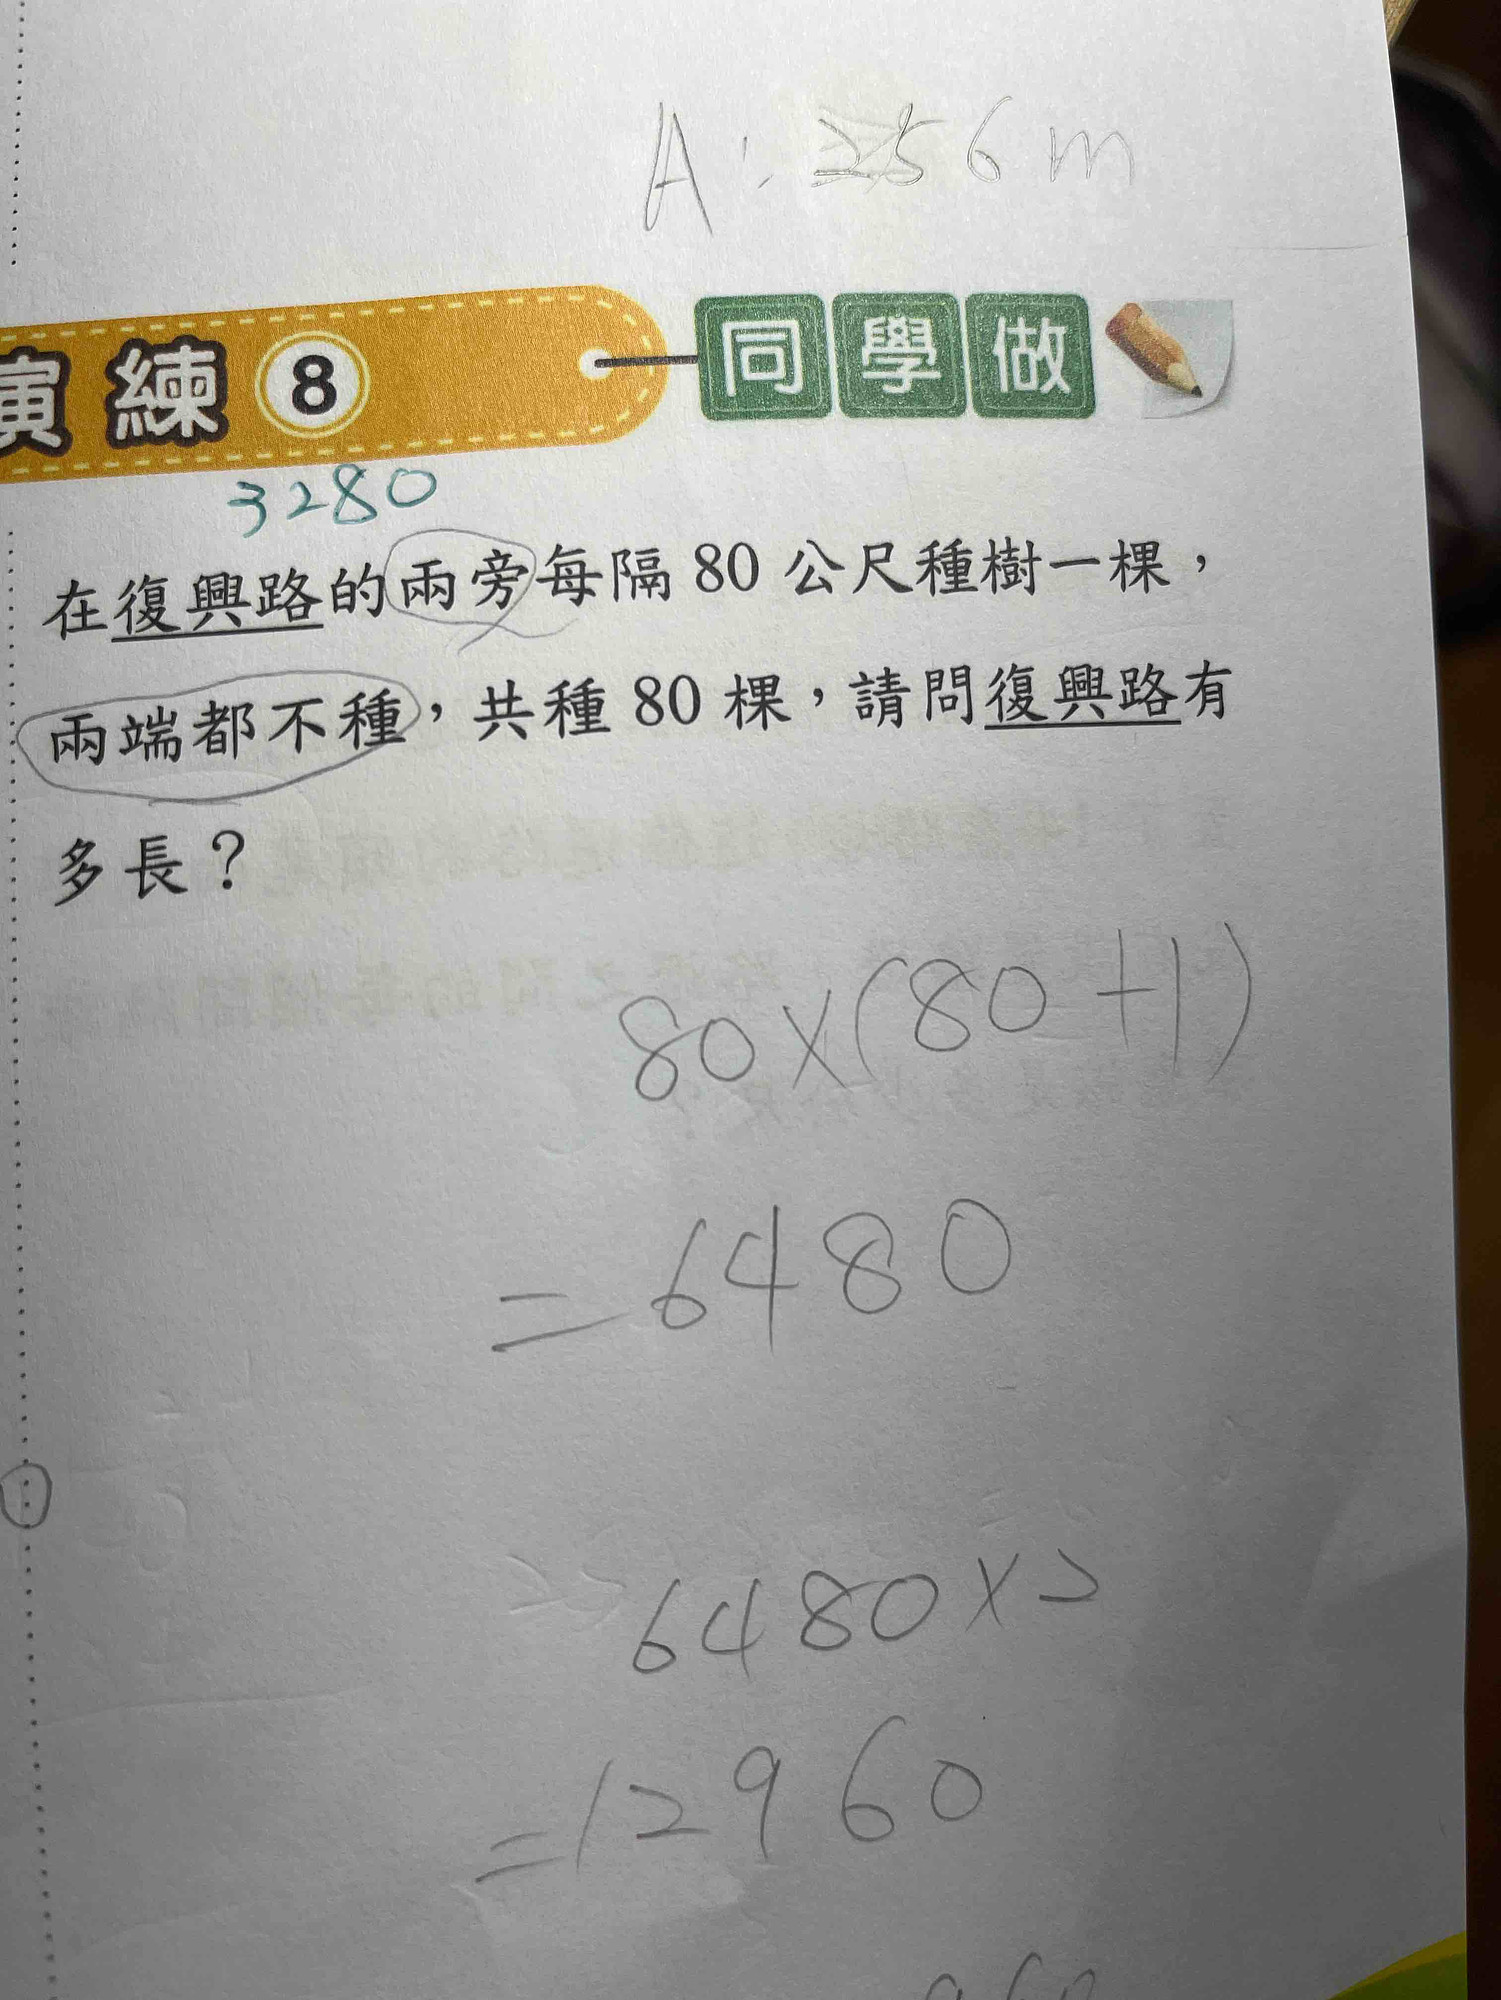 A: 256m
演練8 同學做
3280
在復興路的兩旁每隔80公尺種樹一棵，
兩端都不種，共種80棵，請問復興路有
多長？
80×(80+1)
=6480
6480×2
=12960